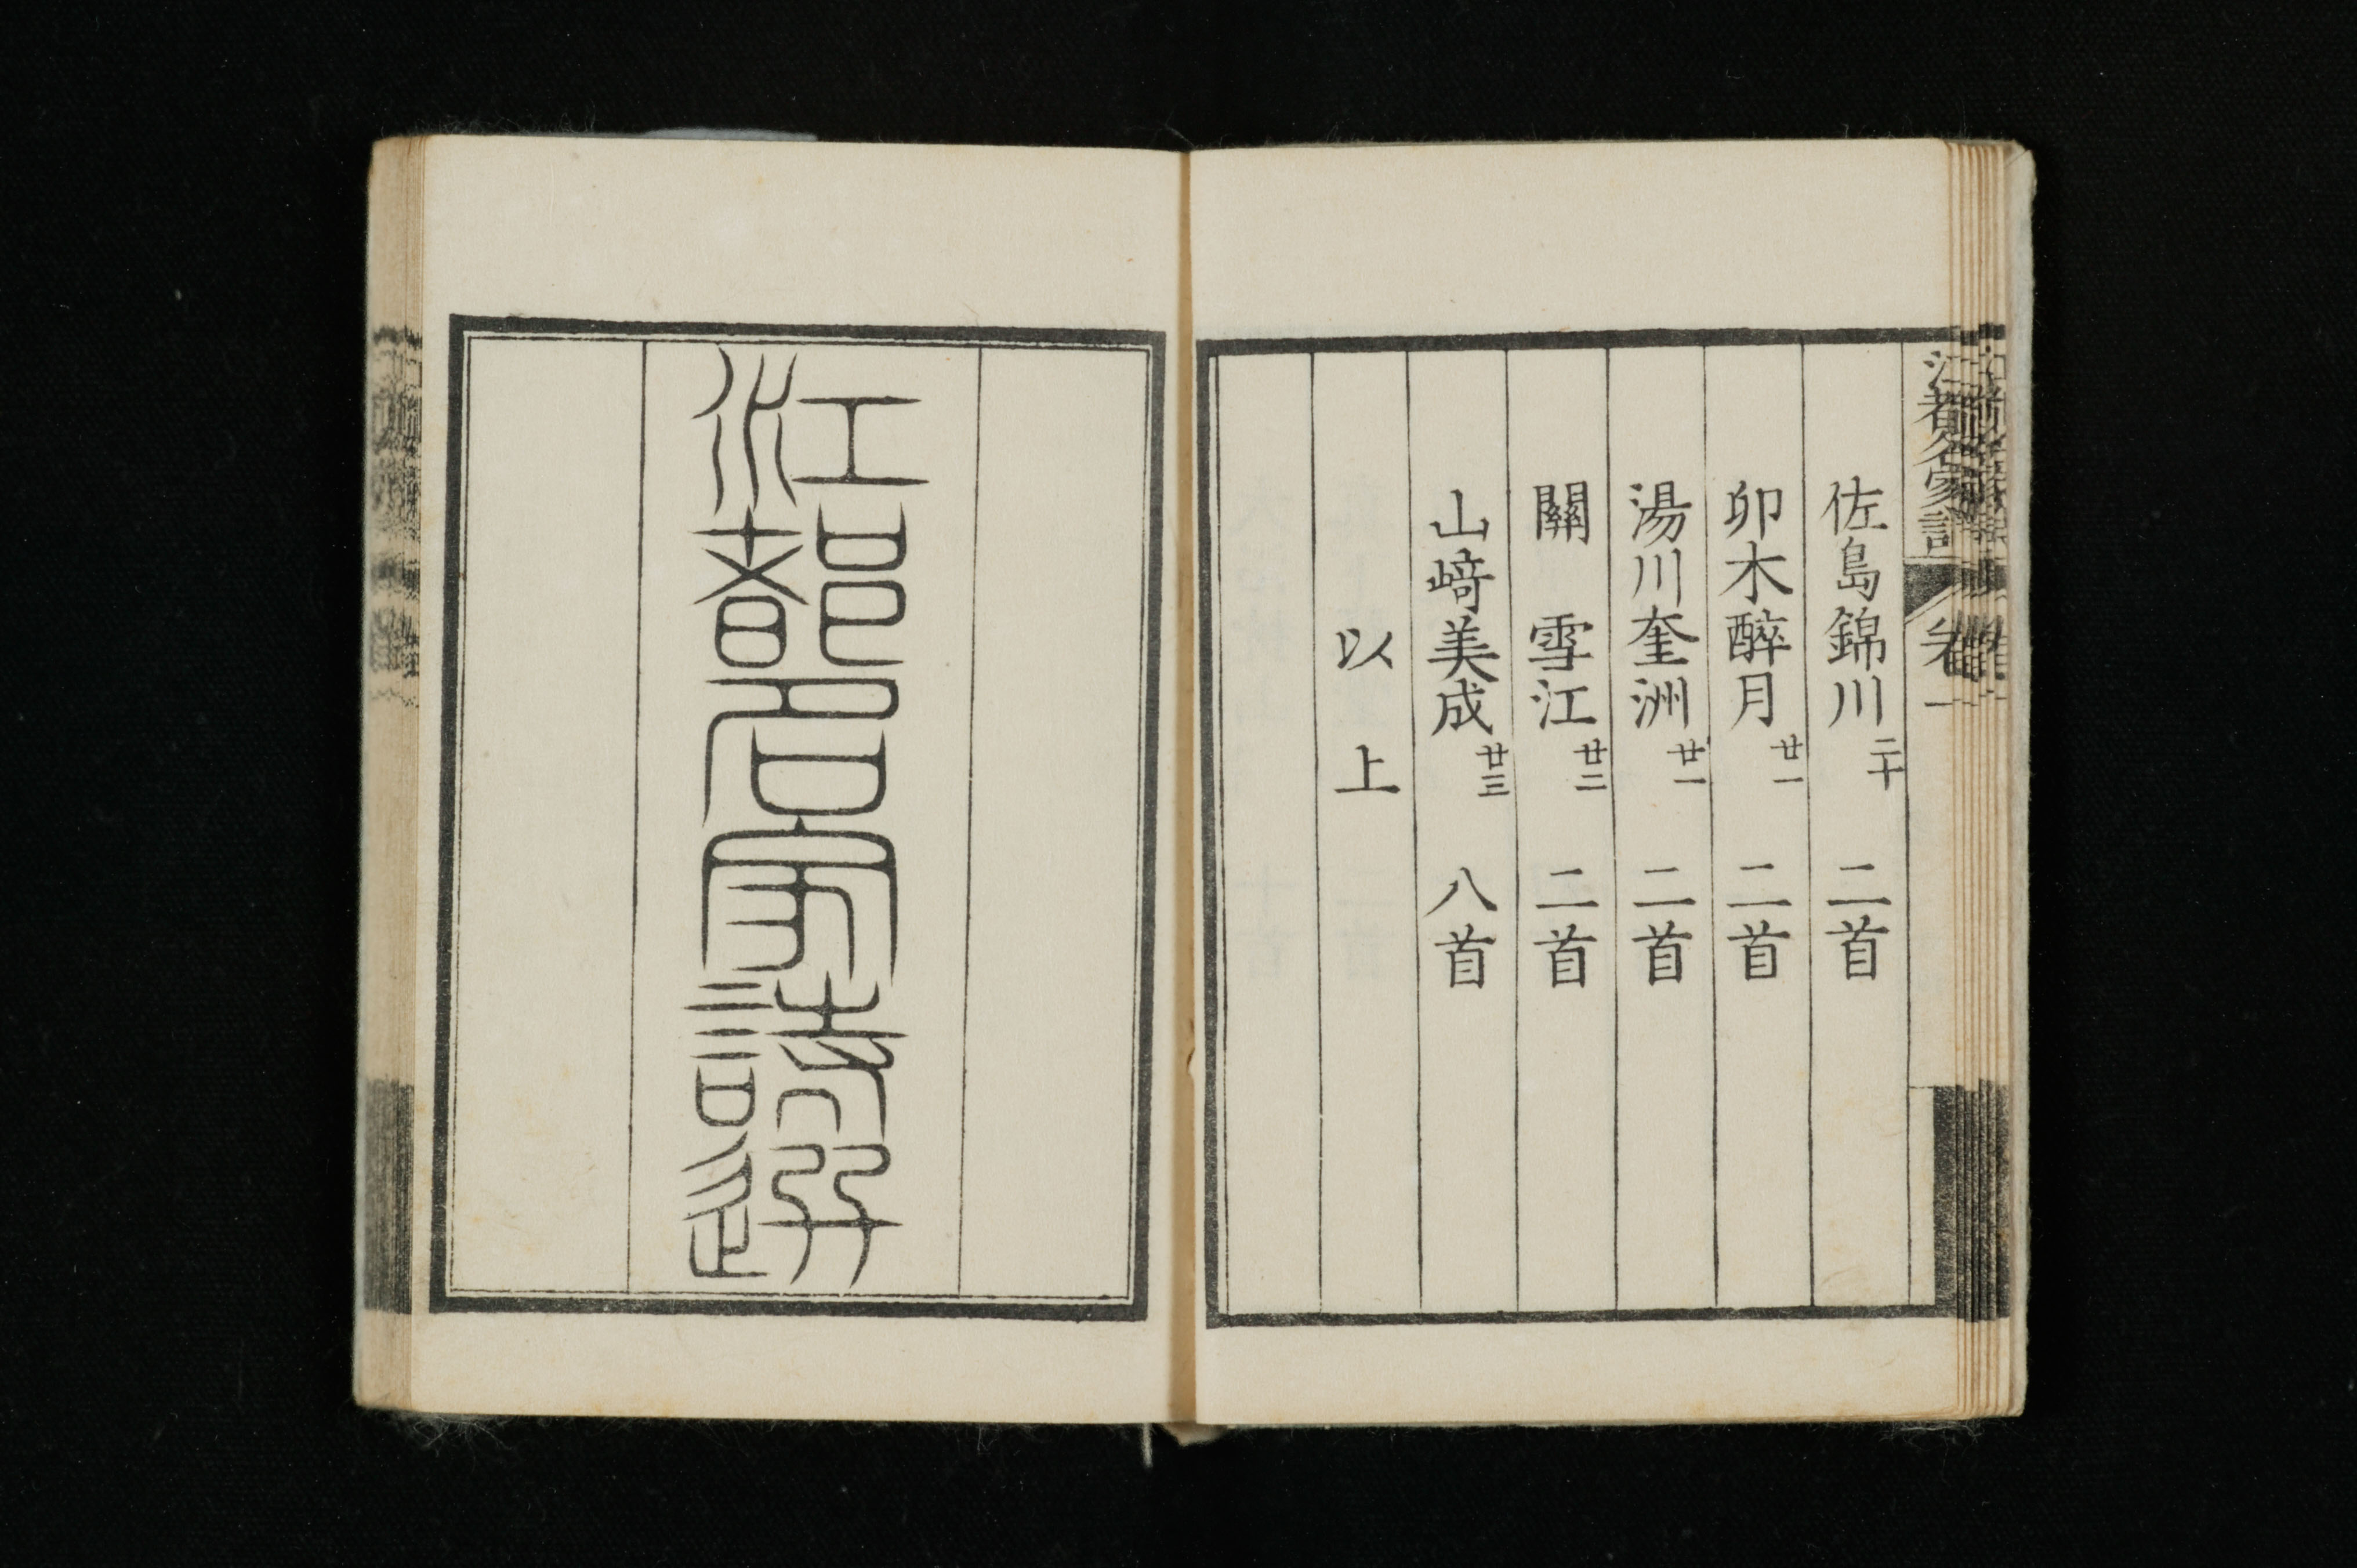 江都名家詩
卷一
佐島錦川二十 二首
卯木醉月廿一 二首
湯川奎洲廿一 二首
關 雪江廿二 二首
山﨑美成廿三 八首
以上
江都名家詩選